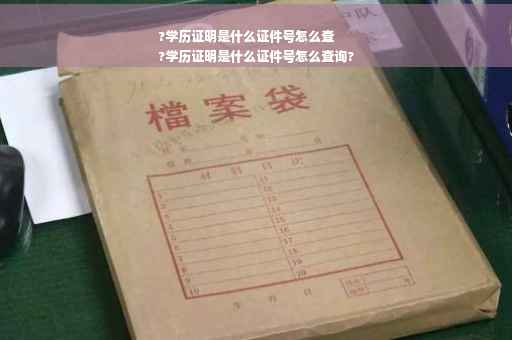 ?学历证明是什么证件号怎么查
?学历证明是什么证件号怎么查询?
檔案袋
材料目次
1
2
3
4
5
6
7
8
9
10
11
12
13
14
15
16
17
18
19
20
年 月 日